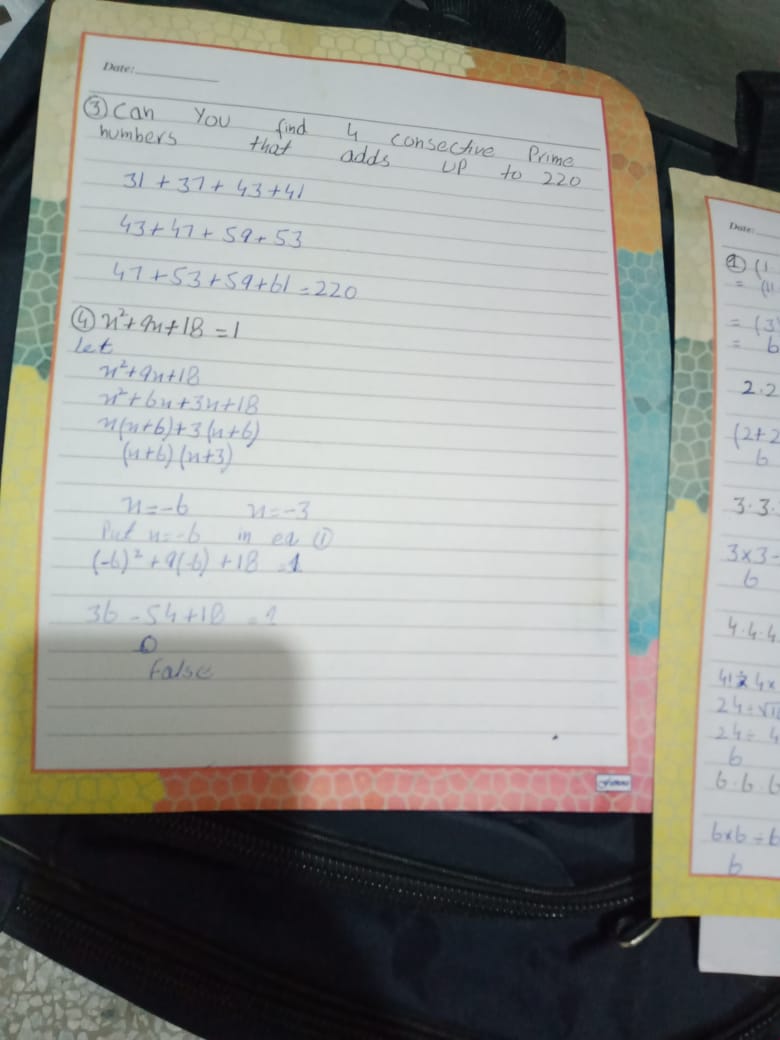 Date:
③ Can You find 4 consective Prime
numbers that adds up to 220
31 + 37 + 43 + 41
43 + 47 + 59 + 53
47 + 53 + 59 + 61 = 220
④ x² + 9x + 18 = 1
let
x² + 9x + 18
x² + 6x + 3x + 18
x(x+6) + 3(x+6)
(x+6) (x+3)
x = -6 x = -3
Put x = -6 in eq ①
(-6)² + 9(-6) + 18 = 1
36 - 54 + 18 = 1
0
false
Date:
① (1
= (11
= (3
= 6
2·2
(2+2
6
3·3·
3×3-
6
4·4·4
4! 4×
24÷√1
24÷ 4
6
6·6·6
6×6÷6
6